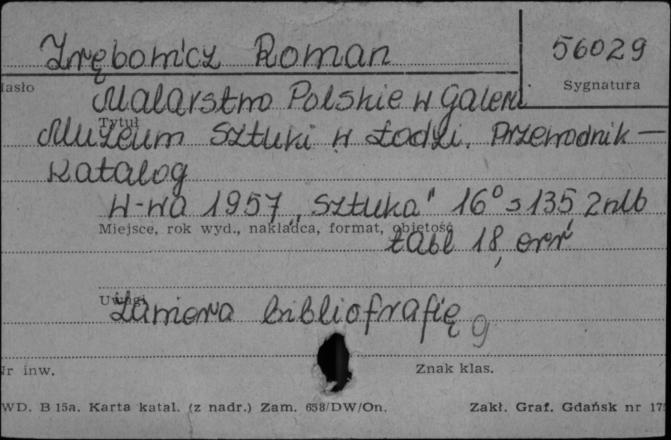 Zrębowicz Roman
56029
Hasło
Sygnatura
Malarstwo Polskie w Galerii
Tytuł
Muzeum Sztuki w Łodzi. Przewodnik —
Katalog
W-wa 1957 „Sztuka" 16° s 135 2nlb
Miejsce, rok wyd., nakładca, format, objętość
tabl 18,
Uwagi
Zawiera bibliografię
Nr inw.
Znak klas.
WD. B 15a. Karta katal. (z nadr.) Zam. 658/DW/On.
Zakł. Graf. Gdańsk nr